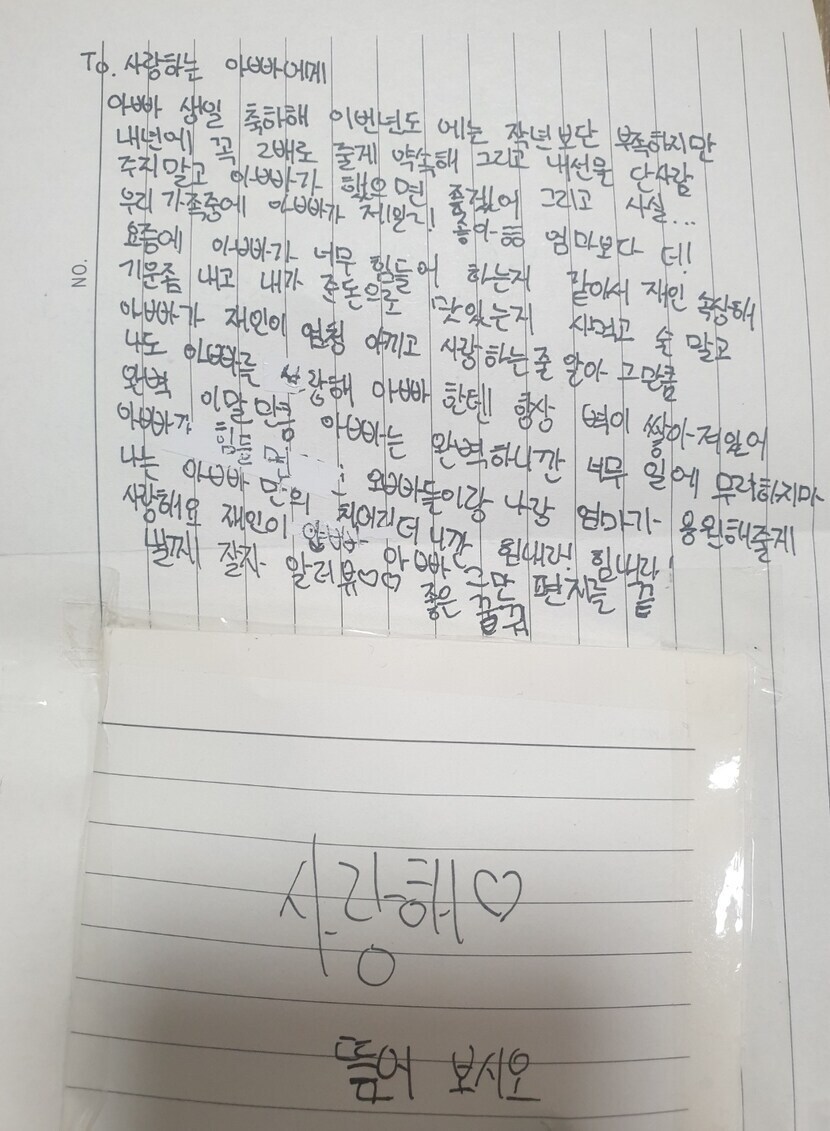 To. 사랑하는 아빠에게
아빠 생일 축하해 이번년도 에는 작년보단 부족하지만
내년에 꼭 2배로 줄게 약속해 그리고 내선물 단사람
주지말고 아빠가 했으면 좋겠어 그리고 사실...
우리 가족중에 아빠가 제일 좋아 엄마보다 더!
요즘에 아빠가 너무 힘들어 하는지 같아서 재인 속상해
기운좀 내고 내가 준돈으로 맛있는지 사먹고 술 말고
아빠가 재인이 엄청 아끼고 사랑하는줄 알아 그만큼
나도 아빠를 사랑해 아빠 한텐!! 항상 벽이 쌓아져있어
완벽 이말만큼 아빠는 완벽하니깐 너무 일에 무리하지마
아빠가 힘들면 오빠들이랑 나랑 엄마가 응원해줄게
나는 아빠 만의 치어리더 니깐 힘내라! 힘내라!
사랑해요 재인이 아빠 그만 편지를 끝
낼께 잘자 알러뷰♡ 좋은 꿈꿔
NO.
사랑해♡
뜯어 보시오